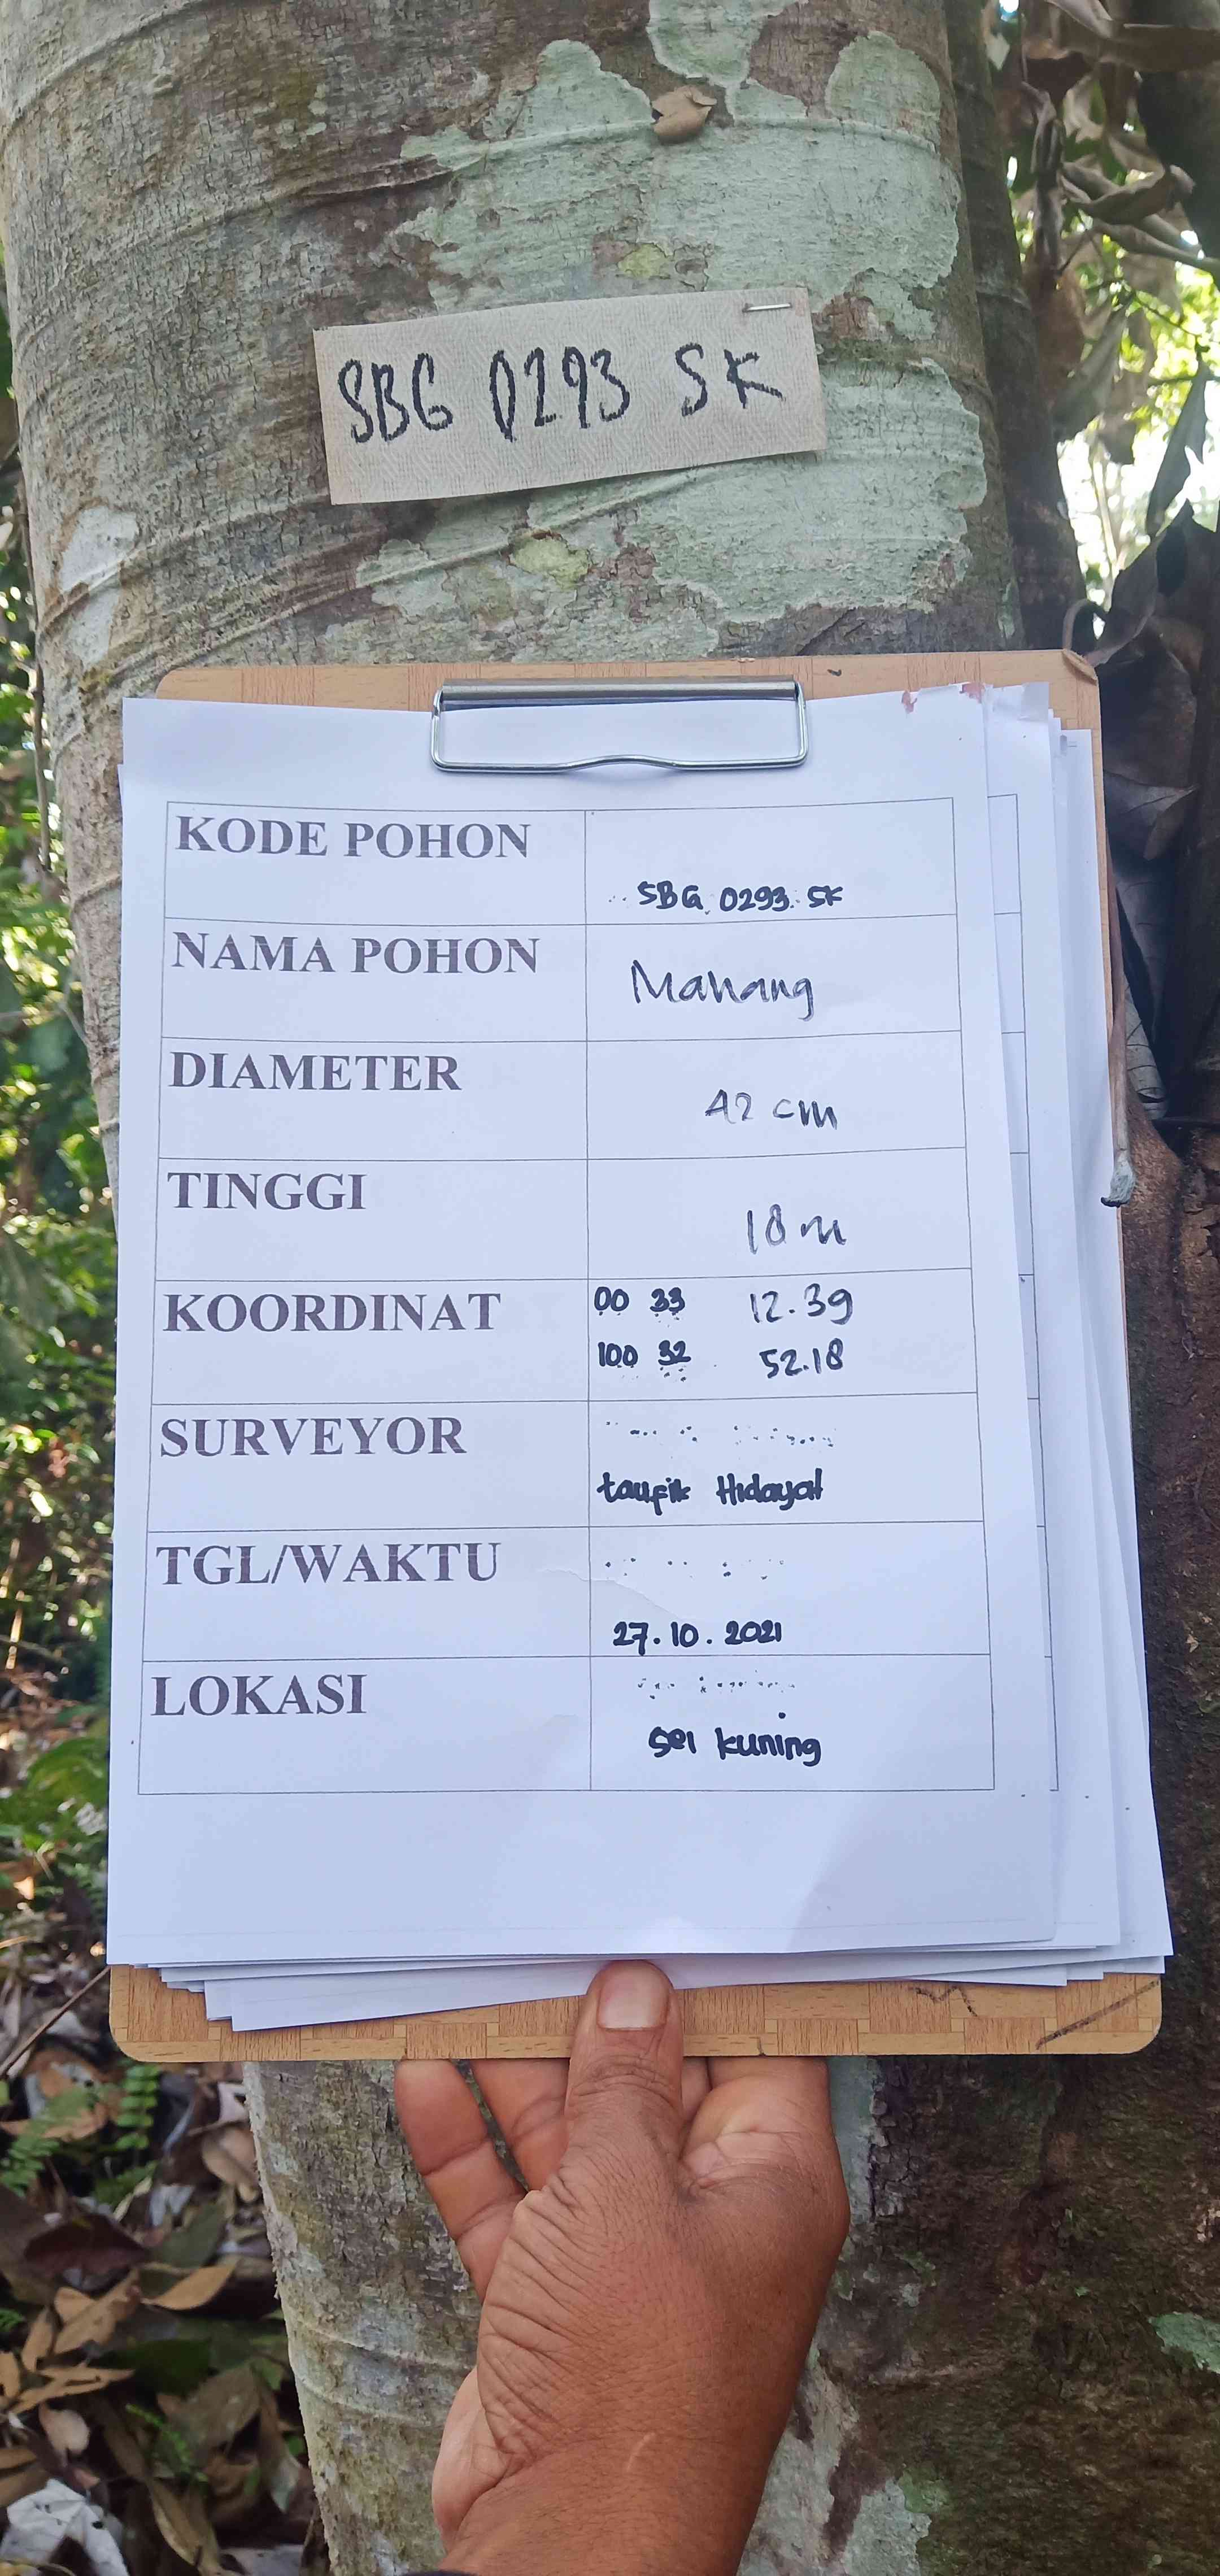 SBG 0293 SK
KODE POHON
SBG 0293 SK
NAMA POHON
Mahang
DIAMETER
42 cm
TINGGI
18 m
KOORDINAT
00 33 12.39
100 32 52.18
SURVEYOR
taufik Hidayat
TGL/WAKTU
27.10.2021
LOKASI
Sei kuning